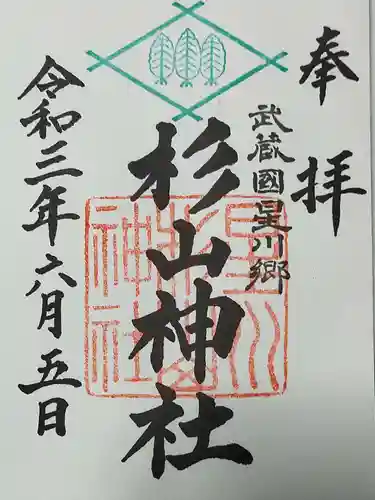 奉拝
武蔵國星川郷
杉山神社
星川杉山神社
令和三年六月五日